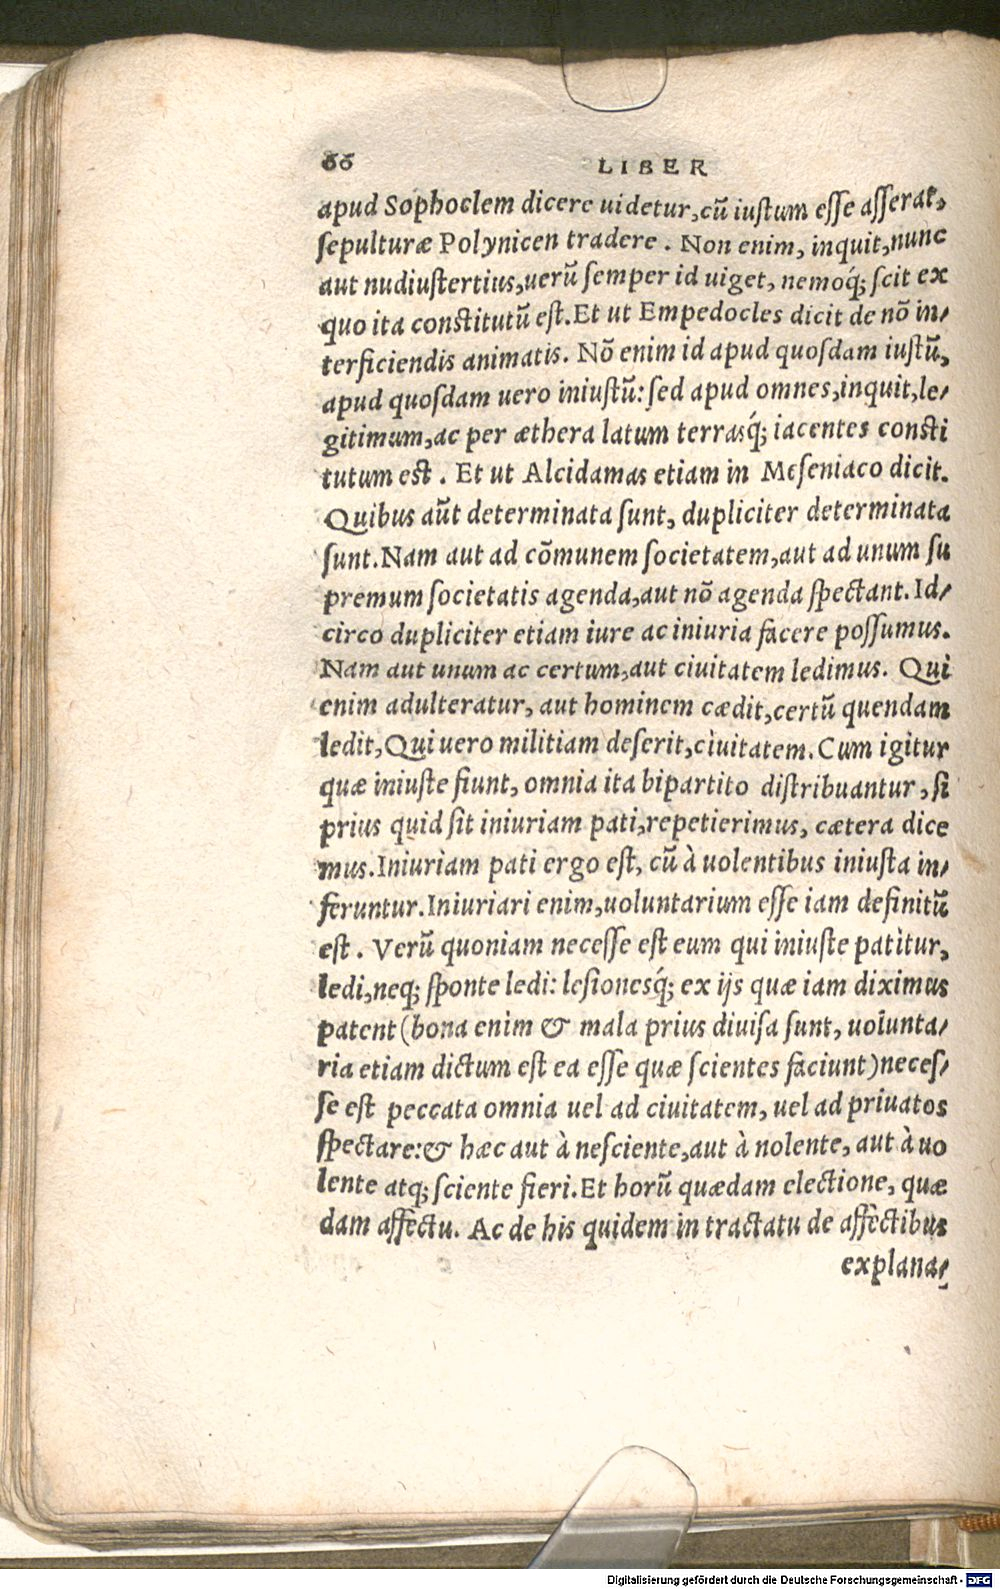 66 LIBER
apud Sophoclem dicere uidetur,cũ iustum esse asserat,
sepulturæ Polynicen tradere. Non enim, inquit,nunc
aut nudiustertius,uerũ semper id uiget, nemoq́; scit ex
quo ita constitutũ est.Et ut Empedocles dicit de nõ in/
terficiendis animatis. Nõ enim id apud quosdam iustũ,
apud quosdam uero iniustũ: sed apud omnes,inquit,le/
gitimum,ac per æthera latum terrasq́; iacentes consti
tutum est. Et ut Alcidamas etiam in Meseniaco dicit.
Quibus aũt determinata sunt, dupliciter determinata
sunt.Nam aut ad cõmunem societatem,aut ad unum su
premum societatis agenda,aut nõ agenda spectant.Id/
circo dupliciter etiam iure ac iniuria facere possumus.
Nam aut unum ac certum,aut ciuitatem ledimus. Qui
enim adulteratur, aut hominem cædit,certũ quendam
ledit,Qui uero militiam deserit,ciuitatem.Cum igitur
quæ iniuste fiunt, omnia ita bipartito distribuantur, si
prius quid sit iniuriam pati,repetierimus, cætera dice
mus.Iniuriam pati ergo est, cũ à uolentibus iniusta in/
feruntur.Iniuriari enim,uoluntarium esse iam definitũ
est. Verũ quoniam necesse est eum qui iniuste patitur,
ledi,neq; sponte ledi: lesionesq́; ex ijs quæ iam diximus
patent(bona enim & mala prius diuisa sunt, uolunta/
ria etiam dictum est ea esse quæ scientes faciunt)neces/
se est peccata omnia uel ad ciuitatem, uel ad priuatos
spectare:& hæc aut à nesciente,aut à nolente, aut à uo
lente atq; sciente fieri.Et horũ quædam electione, quæ
dam affectu. Ac de his quidem in tractatu de affectibus
explana/
Digitalisierung gefördert durch die Deutsche Forschungsgemeinschaft - DFG